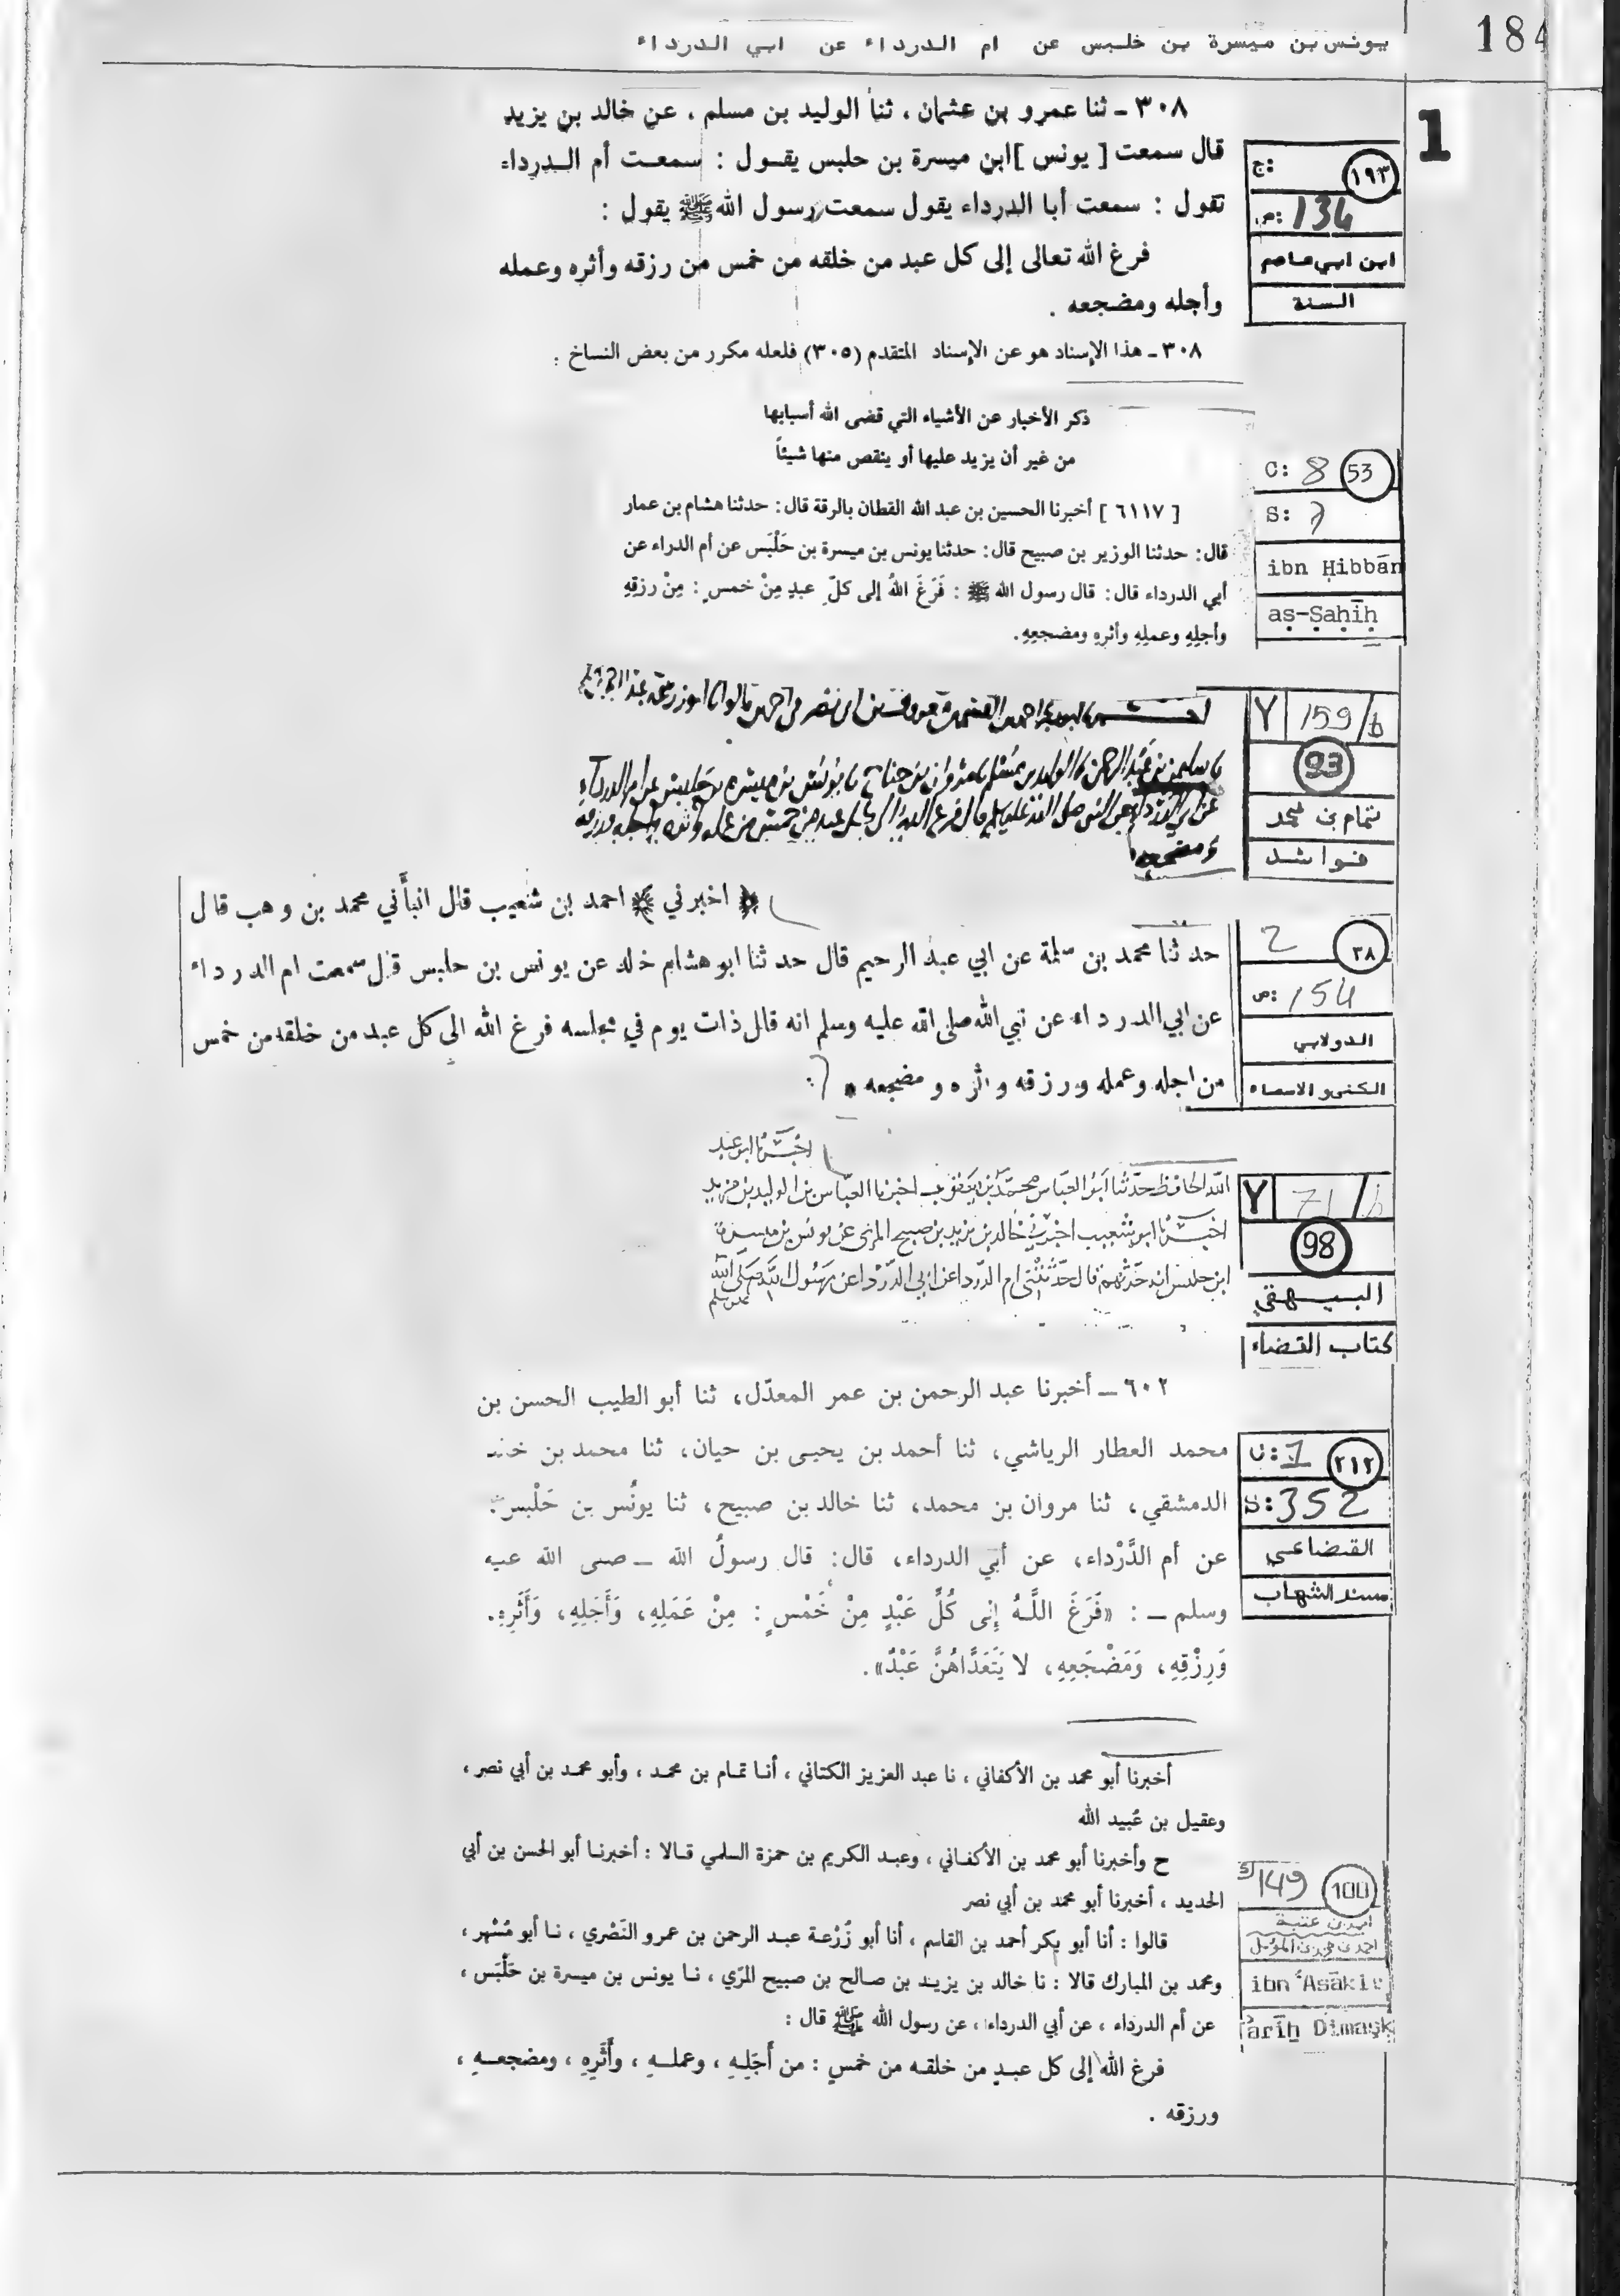 184
يونس بن ميسرة بن خلبس عن ام الدرداء عن ابي الدرداء
1
٣٠٨ ـ ثنا عمرو بن عثمان ، ثنا الوليد بن مسلم ، عن خالد بن يزيد
قال سمعت [ يونس ] ابن ميسرة بن حلبس يقول : سمعت أم الدرداء
تقول : سمعت أبا الدرداء يقول سمعت رسول الله ﷺ يقول :
فرغ الله تعالى إلى كل عبد من خلقه من خمس من رزقه وأثره وعمله
وأجله ومضجعه .
٣٠٨ ـ هذا الإسناد هو عن الإسناد المتقدم (٣٠٥) فلعله مكرر من بعض النساخ .
ج:
١٩٣
ص: 134
ابن ابي عاصم
السنة
ذكر الأخبار عن الأشياء التي قضى الله أسبابها
من غير أن يزيد عليها أو ينقص منها شيئاً
[ ٦١١٧ ] أخبرنا الحسين بن عبد الله القطان بالرقة قال: حدثنا هشام بن عمار
قال: حدثنا الوزير بن صبيح قال: حدثنا يونس بن ميسرة بن حَلْبَس عن أم الدراء عن
أبي الدرداء قال: قال رسول الله ﷺ : فَرَغَ اللهُ إلى كلِّ عبدٍ مِنْ خمسٍ: مِنْ رزقِهِ
وأجلِهِ وعملِهِ وأثرِهِ ومضجعِهِ.
C: 8 53
S: 7
ibn Ḥibbān
aṣ-Ṣaḥīḥ
عن ابي الدرداء عن النبي صلى الله عليه وسلم قال فرغ الله الى كل عبد من خمس من عمله واثره واجله ورزقه
ومضجعه
Y 159/b
93
تمام بن محمد
فوائد
اخبرني احمد بن شعيب قال انبأني محمد بن وهب قال
حدثنا محمد بن سلمة عن ابي عبد الرحيم قال حدثنا ابو هشام خالد عن يونس بن حلبس قال سمعت ام الدرداء
عن ابي الدرداء عن نبي الله صلى الله عليه وسلم انه قال ذات يوم في مجلسه فرغ الله الى كل عبد من خلقه من خمس
من اجله وعمله ورزقه واثره ومضجعه
2 ٣٨
ص: 154
الدولابي
الكنى والاسماء
اخبرنا ابو عبد
الله الحافظ حدثنا ابو العباس محمد بن يعقوب اخبرنا العباس بن الوليد بن مزيد
اخبرنا ابو شعيب اخبرني خالد بن يزيد بن صبيح المري عن يونس بن ميسرة
ابن حلبس انه حدثهم قال حدثتني ام الدرداء عن ابي الدرداء عن رسول الله صلى الله
عليه وسلم
Y 71/b
98
البيهقي
كتاب القضاء
٦٠٢ ـ أخبرنا عبد الرحمن بن عمر المعدّل، ثنا أبو الطيب الحسن بن
محمد العطار الرياشي، ثنا أحمد بن يحيى بن حيان، ثنا محمد بن خلد
الدمشقي، ثنا مروان بن محمد، ثنا خالد بن صبيح، ثنا يونُس بن حَلْبس.
عن أم الدَّرْداء، عن أبي الدرداء، قال: قال رسولُ الله ـ صلى الله عليه
وسلم ـ : «فَرَغَ اللَّهُ إِلى كُلِّ عَبْدٍ مِنْ خَمْسٍ: مِنْ عَمَلِهِ، وَأَجَلِهِ، وَأَثَرِهِ.
وَرِزْقِهِ، وَمَضْجَعِهِ، لا يَتَعَدَّاهُنَّ عَبْدٌ».
C: 1 ٢١٢
S: 352
القضاعي
مسند الشهاب
أخبرنا أبو محمد بن الأكفاني ، نا عبد العزيز الكتاني ، أنا تمام بن محمد ، وأبو محمد بن أبي نصر ،
وعقيل بن عُبيد الله
ح وأخبرنا أبو محمد بن الأكفاني ، وعبد الكريم بن حمزة السلمي قالا : أخبرنا أبو الحسن بن أبي
الحديد ، أخبرنا أبو محمد بن أبي نصر
قالوا : أنا أبو بكر أحمد بن القاسم ، أنا أبو زُرْعة عبد الرحمن بن عمرو النَصْري ، نا أبو مُسْهر ،
ومحمد بن المبارك قالا : نا خالد بن يزيد بن صالح بن صبيح المرّي ، نا يونس بن ميسرة بن حَلْبَس ،
عن أم الدرداء ، عن أبي الدرداء ، عن رسول الله ﷺ قال :
فرغ الله إلى كل عبدٍ من خلقه من خمسٍ : من أَجَلِهِ ، وعملِهِ ، وأَثَرِهِ ، ومضجعِهِ ،
ورزقه .
149 100
احمد بن عتبة
ibn ʿAsākir
Tārīḫ Dimaşk